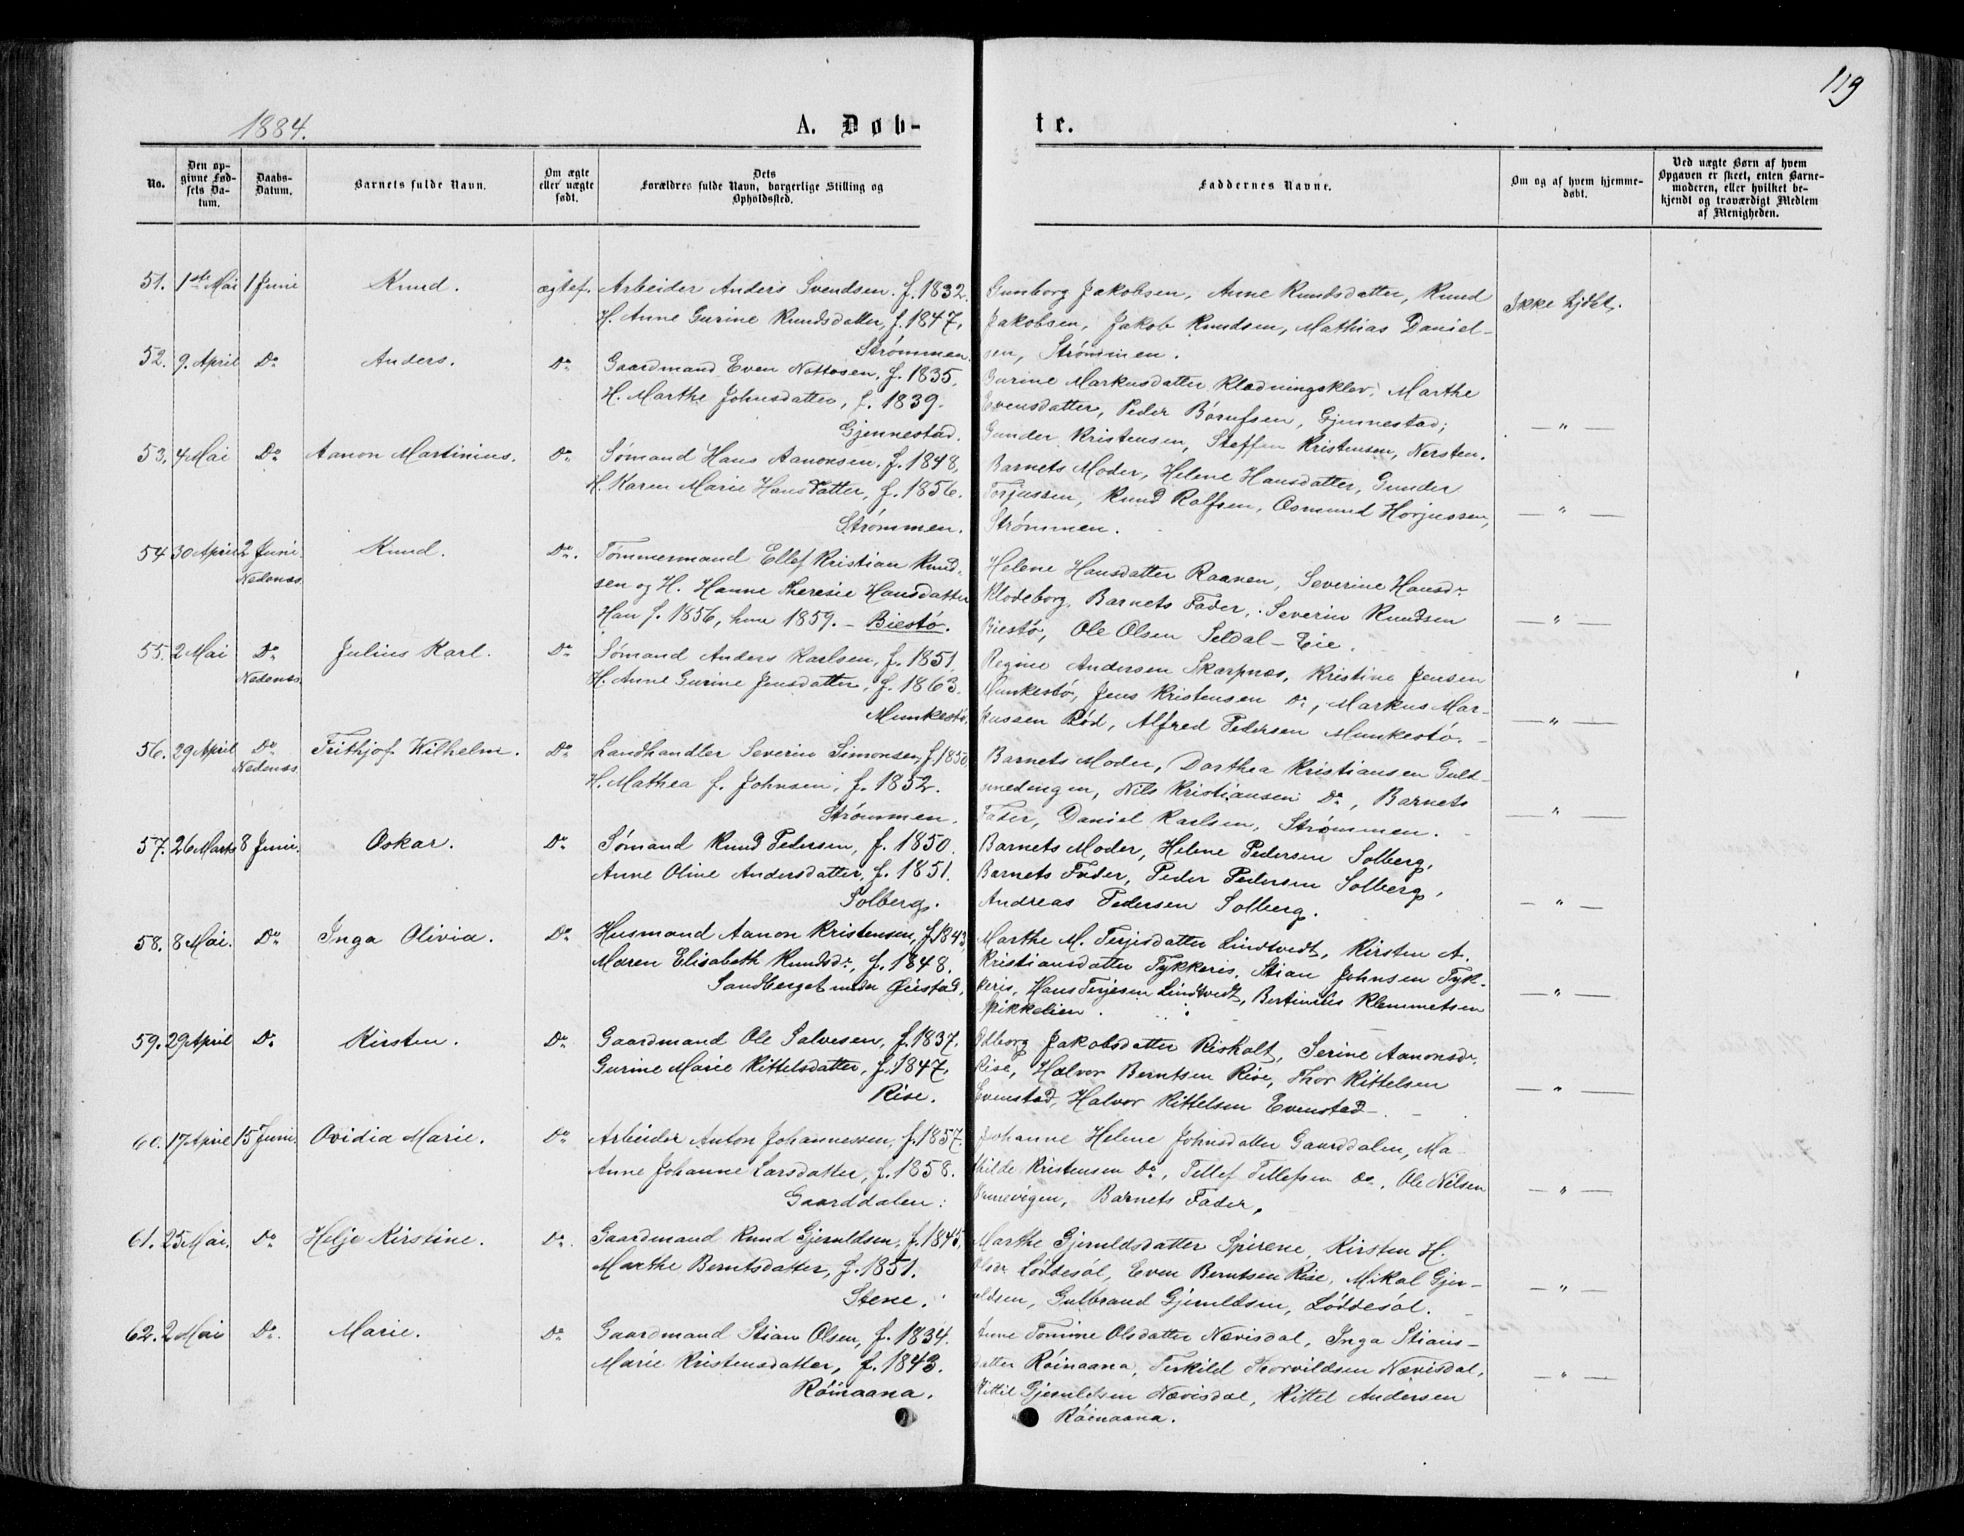 119
1884.
A. Døb-
te.
No.
Den op-
givne Fød-
sels Da-
tum.
Daabs-
Datum.
Barnets fulde Navn.
Om ægte
eller uægte
født.
Dets
Forældres fulde Navn, borgerlige Stilling og
Opholdssted.
Faddernes Navne.
Om og af hvem hjemme-
døbt.
Ved uægte Børn af hvem
Opgaven er skeet, enten Barne-
moderen, eller hvilket be-
kjendt og troværdigt Medlem
af Menigheden.
51. 1ste Mai 1 Juni Knud. ægtef. Arbeider Anders Svendsen. f. 1832.
H. Anne Gurine Knudsdatter, f. 1847,
Strømmen.
Gunborg Jakobsen, Anne Knudsdatter, Knud
Jakobsen, Jakob Knudsen, Mathias Daniel-
sen, Strømmen.
Ikke hjdbt.
52. 9. April Do Anders. Do Gaardmand Even Nottosen, f. 1835,
H. Marthe Johnsdatter, f. 1839.
Gjennestad.
Gurine Markusdatter Klodningsklev, Marthe
Evensdatter, Peder Børufsen, Gjennestad;
Gunder Kristensen, Steffen Kristensen, Nersten.
— " —
53. 4 Mai Do Aanon Martinius. Do Sømand Hans Aanonsen, f. 1848,
H. Karen Marie Hansdatter, f. 1856.
Strømmen.
Barnets Moder, Helene Hansdatter, Gunder
Torjussen, Knud Rolfsen, Osmund Horjussen,
Strømmen.
— " —
54 30 April 2 Juni Knud. Do. Tømmermand Ellef Kristian Knud-
Nedenæs
sen og H. Hanne Theresie Hansdatter
Han f. 1856, hun 1859. – Biestø.
Helene Hansdatter Raanen, Severine Hansdr
Klodeborg, Barnets Fader, Severin Knudsen
Biestø, Ole Olsen Seldal – Eie.
— " —
55. 2 Mai Do Julius Karl. Do Sømand Anders Karlsen, f. 1851
Nedenæs
H. Anne Gurine Jensdatter, f. 1863.
Munkestø.
Regine Andersen Skarpnæs, Kristine Jensen
Munkestø, Jens Kristensen Do, Markus Mar-
kussen Rød, Alfred Pedersen Munkestø.
— " —
56. 29 April Do Frithjof Vilhelm. Do Landhandler Severin Simonsen, f. 1850
Nedenæs
H. Mathea f. Johnsen, f. 1852.
Strømmen.
Barnets Moder, Dorthea Kristiansen Guld-
smedengen, Nils Kristiansen Do, Barnets
Fader, Daniel Karlsen, Strømmen.
— " —
57. 26 Marts 8 Juni. Oskar. Do Sømand Knud Pedersen, f. 1850.
Anne Oline Andersdatter, f. 1851.
Solberg.
Barnets Moder, Helene Pedersen Solberg,
Barnets Fader, Peder Pedersen Solberg,
Andreas Pedersen Solberg.
— " —
58. 8 Mai. Do Inga Olivia. Do Husmand Aanon Kristensen, f. 1843
Maren Elisabeth Knudsdr, f. 1848.
Sandberget under Øiestad,
Marthe M. Terjesdatter Lindtvedt, Kirsten A.
Kristiansdatter Tykkeris, Stian Johnsen Tyk-
keris, Hans Terjesen Lindtvedt, Bertinius Klemmetsen
Spikkelien.
— " —
59. 29 April Do Kirsten. Do Gaardmand Ole Salvesen, f. 1837.
Gurine Marie Kittelsdatter, f. 1847,
Rise.
Odborg Jakobsdatter Risholt, Serine Aanonsdr
Rise, Halvor Berntsen Rise, Thor Kittelsen
Evenstad, Halvor Kittelsen Evenstad –
— " —
60. 17 April 15 Juni. Ovidia Marie. Do Arbeider Anton Johannessen, f. 1857.
Anne Johanne Larsdatter, f. 1858.
Gaarddalen:
Johanne Helene Johnsdatter Gaarddalen, Ma-
thilde Kristensen Do, Tellef Tellefsen Do, Ole Nilsen
Ormevigen, Barnets Fader,
— " —
61. 25 Mai. Do Helje Kirstine. Do. Gaardmand Knud Gjeruldsen, f. 1845,
Marthe Berntsdatter, f. 1851.
Stene.
Marthe Gjeruldsdatter Spirene, Kirsten H.
Olsdr Løddesøl, Even Berntsen Rise, Mikal Gjer-
uldsen, Gulbrand Gjeruldsen, Løddesøl.
— " —
62. 2 Mai Do. Marie. Do Gaardmand Stian Olsen, f. 1834.
Marie Kristensdatter, f. 1843.
Røinaana.
Anne Tomine Olsdatter Nævisdal, Inga Stians-
datter Røinaana, Terkild Thorvildsen Nævisdal,
Kittil Gjeruldsen Nævisdal, Kittel Andersen
Røinaana.
— " —